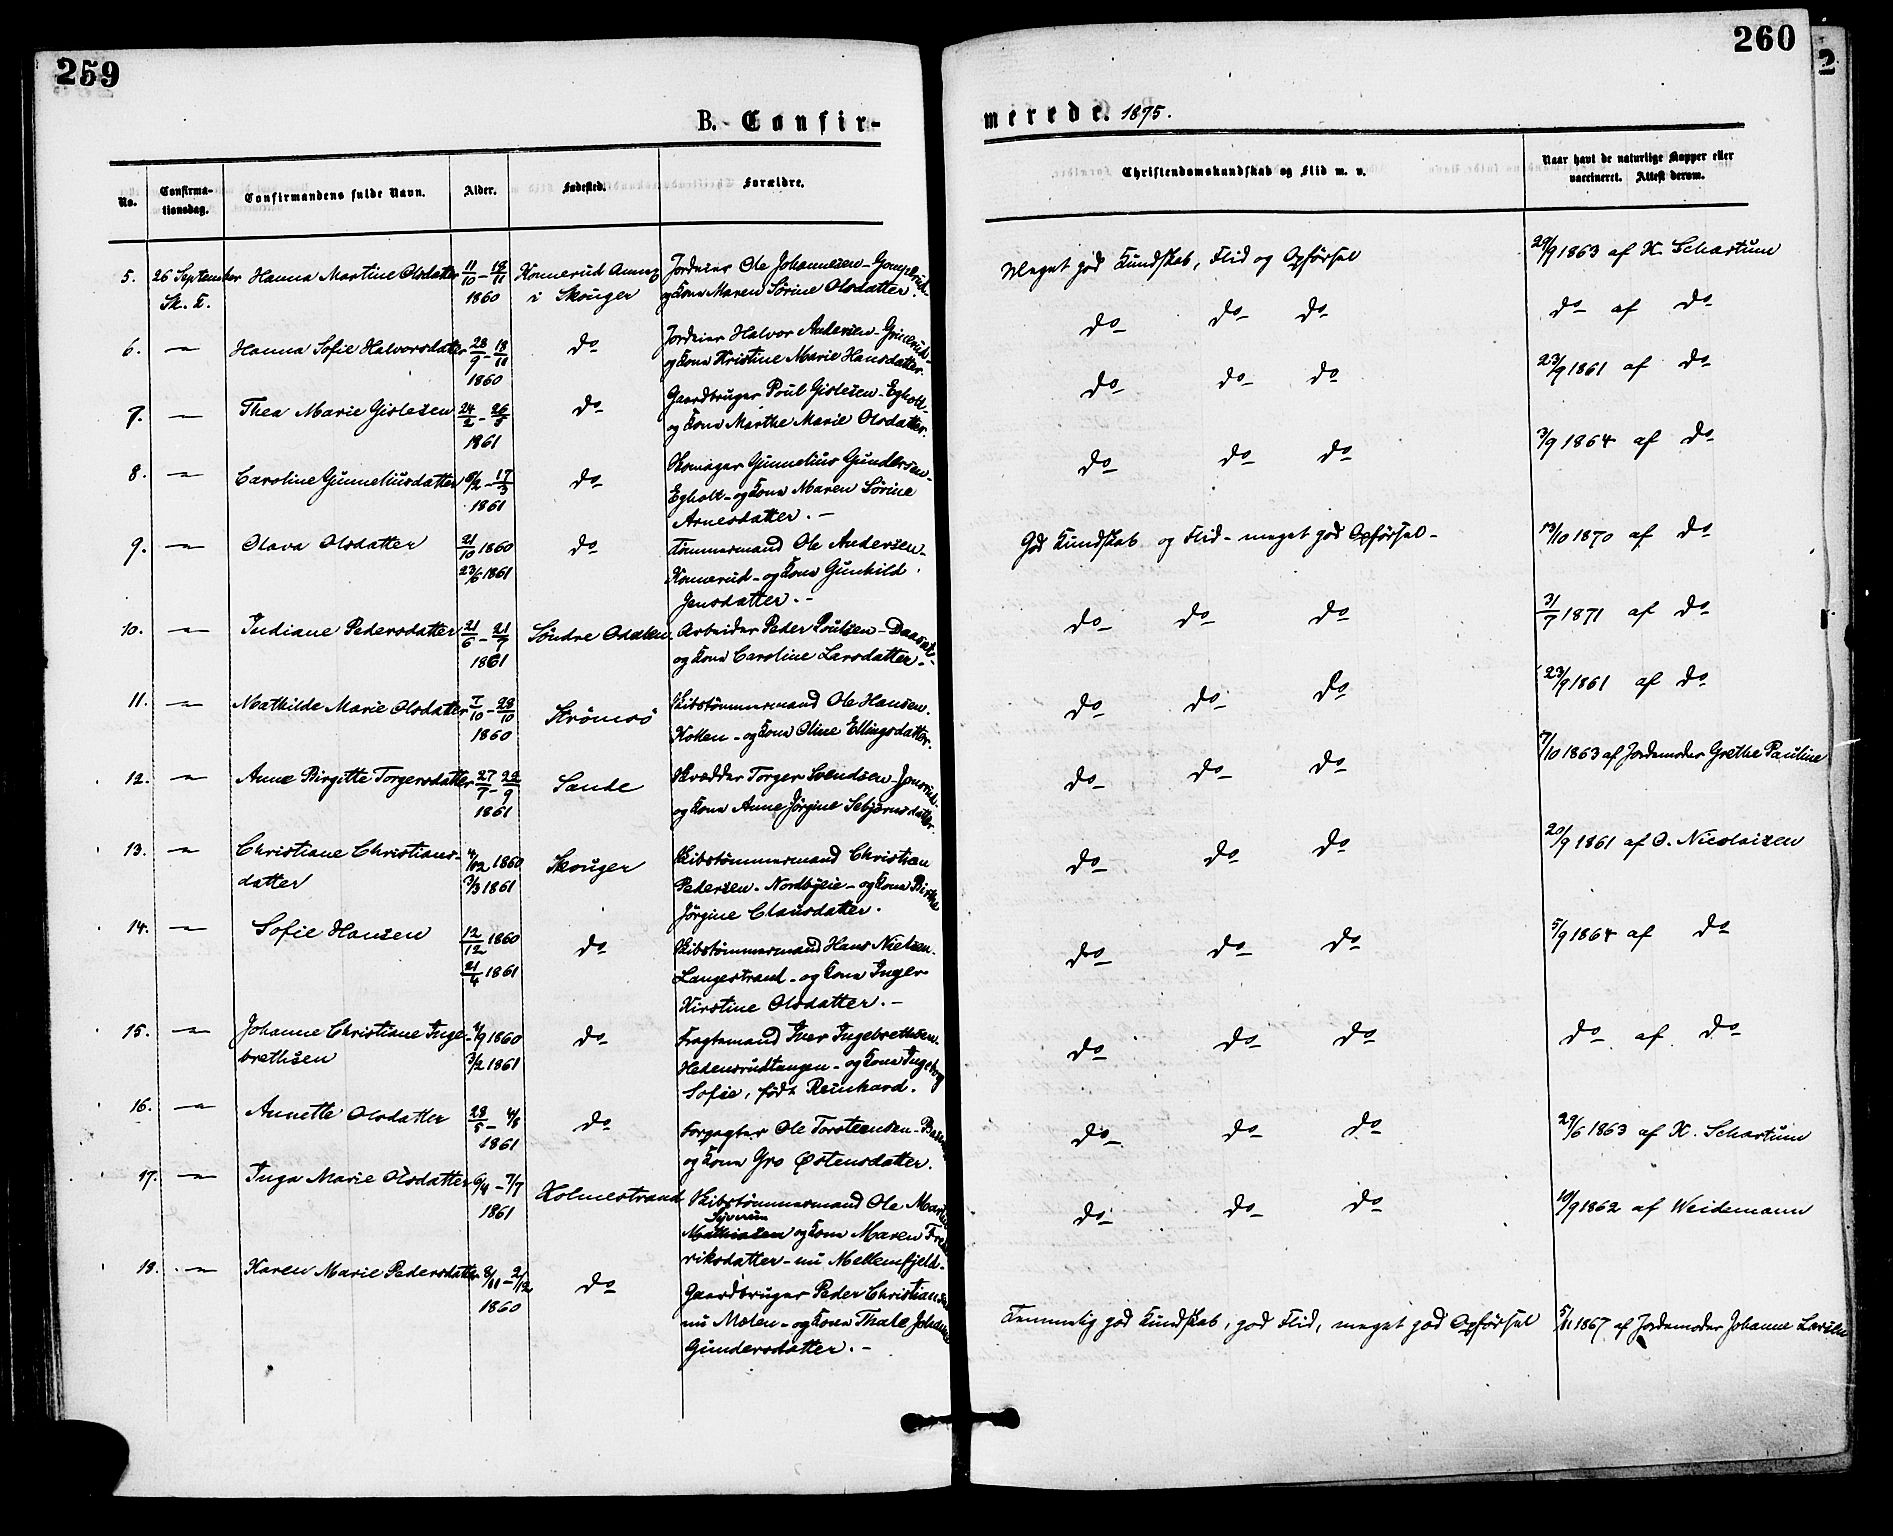 259
B. Confir-
No.
Confirma-
tionsdag.
Confirmandens fulde Navn.
Alder.
Fødested.
Forældre.
5. 26 September Hanna Martine Olsdatter 11/10 - 18/11 Konnerud Annex Jordeier Ole Johannesen - Gomperud -
Sk. K. 1860 i Skouger og Kone Maren Sørine Olsdatter.
6. — Hanna Sofie Halvorsdatter 28/9 - 18/11 do Jordeier Halvor Andersen - Grinerud -
1860 og Kone Kristine Marie Hansdatter.
7. — Thea Marie Gislesen 24/2 - 26/5 do Gaardbruger Poul Gislesen - Egholt -
1861 og Kone Marthe Marie Olsdatter.
8. — Caroline Gunneliusdatter 8/2 - 17/3 do Skomager Gunnelius Gundersen -
1861 Egholt - og Kone Maren Sørine
Arnesdatter. -
9. — Olava Olsdatter 21/10 1860 do Tømmermand Ole Andersen -
23/6 1861 Konnerud - og Kone Gunhild
Jensdatter. -
10. — Indiane Pedersdatter 21/6 - 21/7 Søndre Odalen Arbeider Peder Poulsen -
1861 og Kone Caroline Larsdatter -
11. — Mathilde Marie Olsdatter 7/10 - 28/10 Strømsø Skibstømmermand Ole Hansen -
1860 Kotten - og Kone Oline Ellingsdatter.
12. — Anne Birgitte Torgersdatter 27/7 - 22/9 Sande Skrædder Torger Svendsen Jonsrud -
1861 og Kone Anne Jørgine Sebjørnsdatter.
13. — Christiane Christians- 4/12 1860 Skouger Skibstømmermand Christian
datter 3/3 1861 Pedersen - Nordbyeie - og Kone Birthe
Jørgine Clausdatter.
14. — Sofie Hansen 12/12 1860 do Skibstømmermand Hans Nielsen -
21/4 1861 Langestrand - og Kone Inger
Kirstine Olsdatter. -
15. — Johanne Christiane Inge- /9 1860 do Fragtemand Iver Ingebrethsen -
brethsen 3/2 1861 Hedensrudtangen - og Kone Ingeborg
Sofie, født Reinhard.
16. — Annette Olsdatter 28/5 - 4/8 do Forpagter Ole Torstensen -
1861 og Kone Gro Østensdatter.
17. — Inga Marie Olsdatter 6/4 - 7/7 Holmestrand Skibstømmermand Ole Martin
1861 Syversen
Mathiasen og Kone Maren Fred-
riksdatter - nu Mellemfjeld -
18. — Karen Marie Pedersdatter 8/11 - 2/12 do Gaardbruger Peder Christiansen
1860 nu Molen - og Kone Thale Johanne
Gundersdatter. -
260
merede. 1875.
Christendomskundskab og Flid m. v.
Naar havt de naturlige Kopper eller
vaccineret. Attest derom.
Meget god Kundskab, Flid og Opførsel 29/9 1863 af K. Schartum
do do do do af do
do do do 23/9 1861 af do
do do do 3/9 1864 af do
God Kundskab og Flid - meget god Opførsel - 13/10 1870 af do
do do do 31/7 1871 af do
do do do 23/9 1861 af do
do do do 7/10 1863 af Jordemoder Grethe Pauline
do do do 20/9 1861 af O. Nicolaisen
do do do 5/9 1864 af do
do do do do af do
do do do 29/6 1863 af K. Schartum
do do do 10/9 1862 af Weidemann
Temmelig god Kundskab, god Flid, meget god Opførsel 5/11 1867 af Jordemoder Johanne Larsen
2